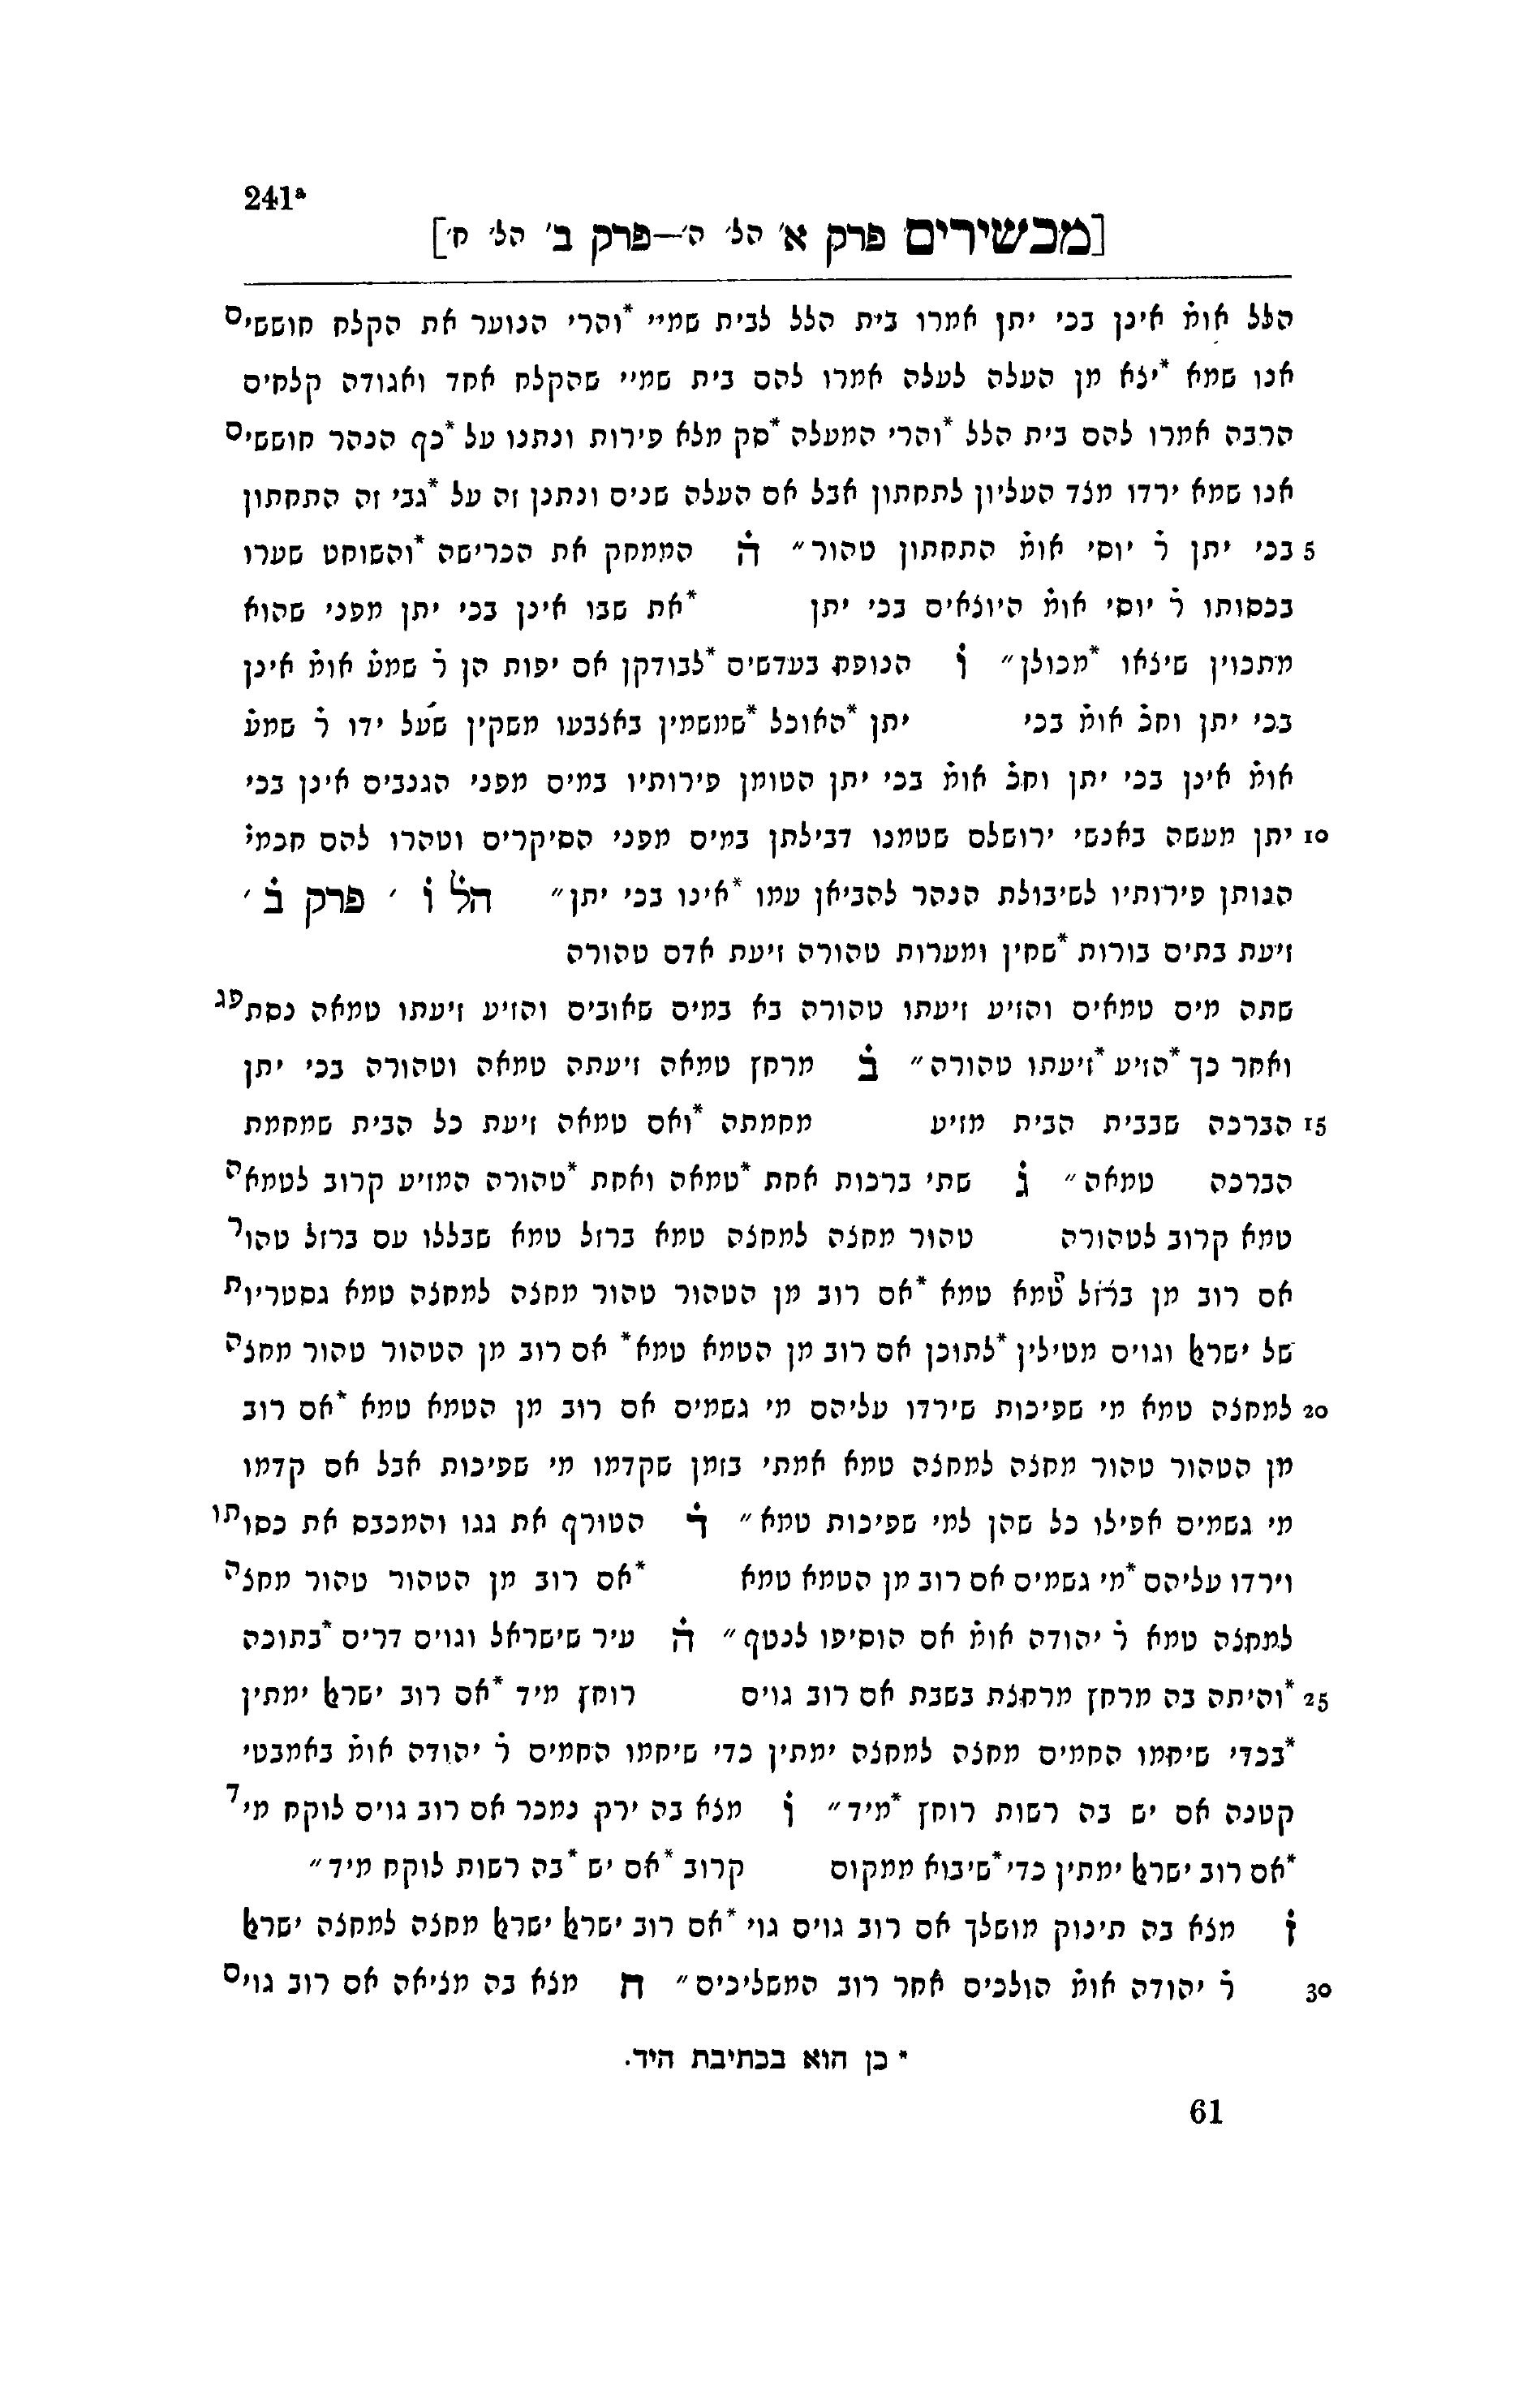 241ª
[מכשירים פרק א׳ הל׳ ה׳—פרק ב׳ הל׳ ח׳]
הלל אומ̇ אינן בכי יתן אמרו בית הלל לבית שמיי *והרי הנוער את הקלח חוששים
אנו שמא *יצא מן העלה לעלה אמרו להם בית שמיי שהקלח אחד ואגודה קלחים
הרבה אמרו להם בית הלל *והרי המעלה *סק מלא פירות ונתנו על *כף הנהר חוששים
אנו שמא ירדו מצד העליון לתחתון אבל אם העלה שנים ונתנן זה על *גבי זה התחתון
5 בכי יתן ר̇ יוסי אומ̇ התחתון טהור״ ה̇ הממחק את הכרישה *והשוחט שערו
בכסותו ר̇ יוסי אומ̇ היוצאים בכי יתן *את שבו אינן בכי יתן מפני שהוא
מתכוין שיצאו *מכולן״ ו̇ הנופח בעדשים *לבודקן אם יפות הן ר̇ שמע̇ אומ̇ אינן
בכי יתן וחכ̇ אומ̇ בכי יתן *האוכל *שמשמין באצבעו משקין שעל ידו ר̇ שמע̇
אומ̇ אינן בכי יתן וחכ̇ אומ̇ בכי יתן הטומן פירותיו במים מפני הגנבים אינן בכי
10 יתן מעשה באנשי ירושלם שטמנו דבילתן במים מפני הסיקרים וטהרו להם חכמי̇
הנותן פירותיו לשיבולת הנהר להביאן עמו *אינו בכי יתן״ הל̇ ו̇ ׳ פרק ב̇ ׳
זיעת בתים בורות *שחין ומערות טהורה זיעת אדם טהורה
שתה מים טמאים והזיע זיעתו טהורה בא במים שאובים והזיע זיעתו טמאה נסתפג
ואחר כך *הזיע *זיעתו טהורה״ ב̇ מרחץ טמאה זיעתה טמאה וטהורה בכי יתן
15 הברכה שבבית הבית מזיע מחמתה *ואם טמאה זיעת כל הבית שמחמת
הברכה טמאה״ ג̇ שתי ברכות אחת *טמאה ואחת *טהורה המזיע קרוב לטמאה
טמא קרוב לטהורה טהור מחצה למחצה טמא ברזל טמא שבללו עם ברזל טהור
אם רוב מן ברזל טמא טמא *אם רוב מן הטהור טהור מחצה למחצה טמא גסטריות
של ישרﭏ וגוים מטילין *לתוכן אם רוב מן הטמא טמא* אם רוב מן הטהור טהור מחצה
20 למחצה טמא מי שפיכות שירדו עליהם מי גשמים אם רוב מן הטמא טמא *אם רוב
מן הטהור טהור מחצה למחצה טמא אמתי בזמן שקדמו מי שפיכות אבל אם קדמו
מי גשמים אפילו כל שהן למי שפיכות טמא״ ד̇ הטורף את גגו והמכבס את כסותו
וירדו עליהם *מי גשמים אם רוב מן הטמא טמא *אם רוב מן הטהור טהור מחצה
למחצה טמא ר̇ יהודה אומ̇ אם הוסיפו לנטף״ ה̇ עיר שישראל וגוים דרים *בתוכה
25 *והיתה בה מרחץ מרחצת בשבת אם רוב גוים רוחץ מיד *אם רוב ישרﭏ ימתין
*בכדי שיחמו החמים מחצה למחצה ימתין כדי שיחמו החמים ר̇ יהודה אומ̇ באמבטי
קטנה אם יש בה רשות רוחץ *מיד״ ו̇ מצא בה ירק נמכר אם רוב גוים לוקח מיד
*אם רוב ישרﭏ ימתין כדי *שיבוא ממקום קרוב *אם יש *בה רשות לוקח מיד״
ז̇ מצא בה תינוק מושלך אם רוב גוים גוי *אם רוב ישרﭏ ישרﭏ מחצה למחצה ישרﭏ
30 ר̇ יהודה אומ̇ הולכים אחר רוב המשליכים״ ח מצא בה מציאה אם רוב גוים
* כן הוא בכתיבת היד.
61